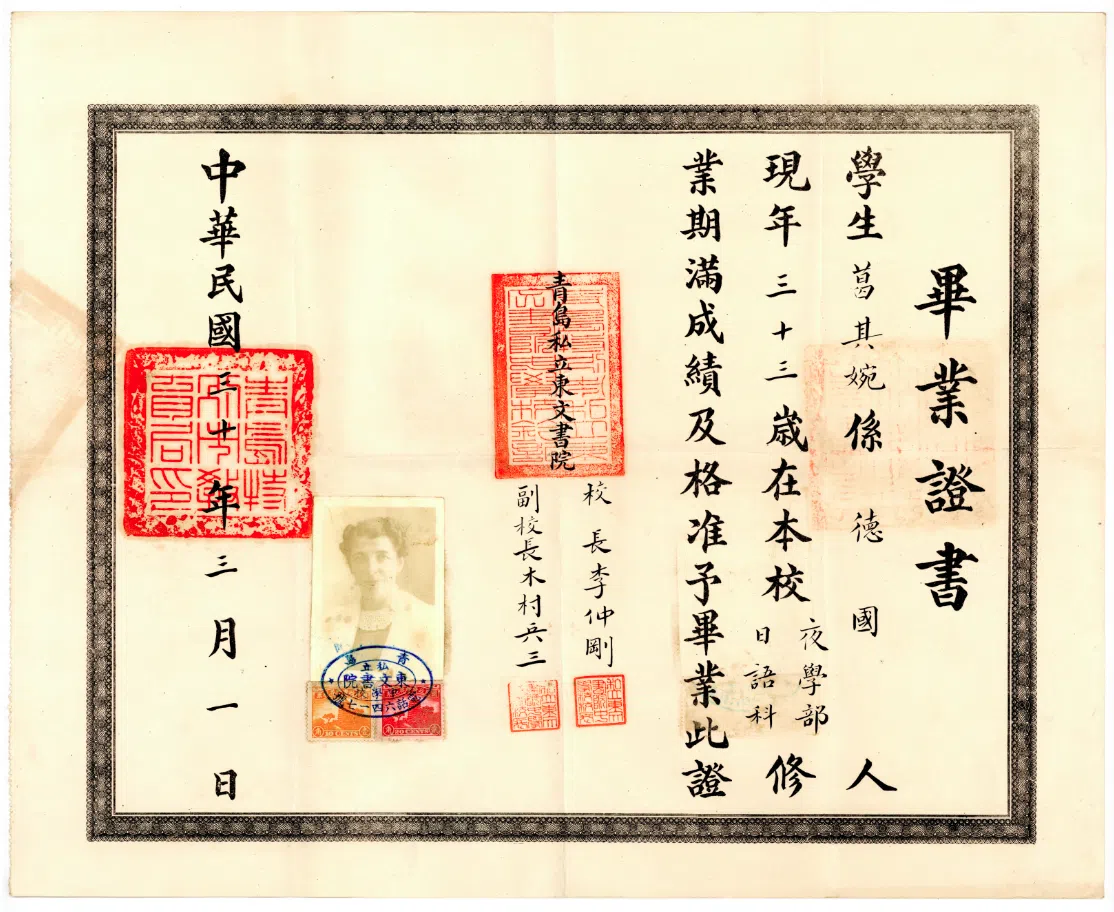 畢業證書
學生葛其婉係德國人
現年三十三歲在本校夜學部日語科修
業期滿成績及格准予畢業此證
青島私立東文書院
校長李仲剛
副校長木村兵三
青島
私立
東文書院
中華民國三十年三月一日